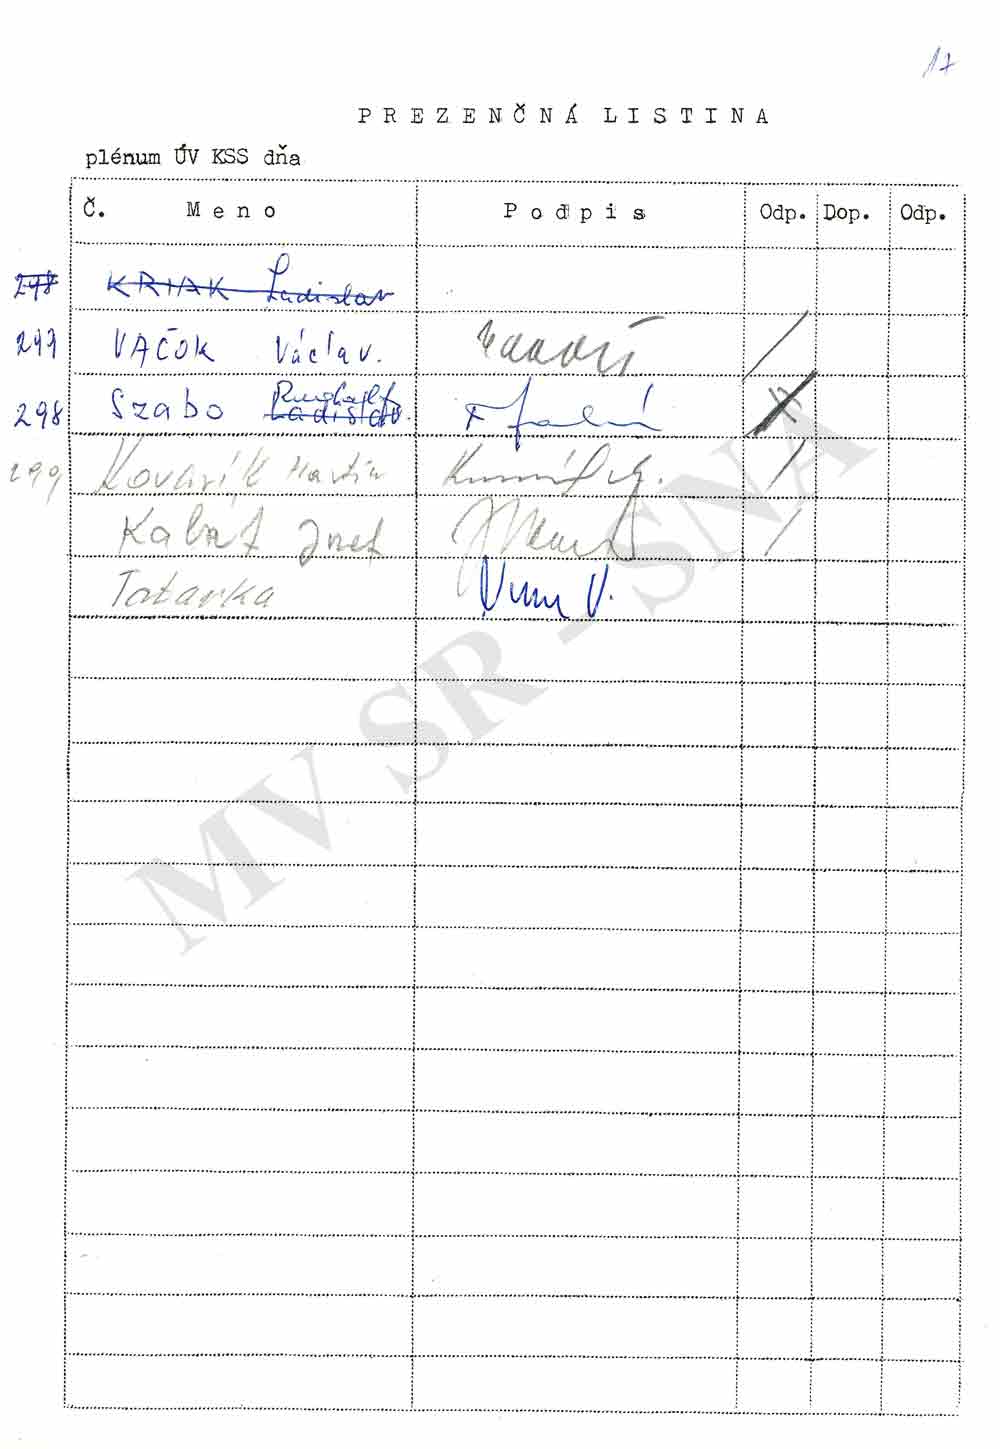 17
PREZENČNÁ LISTINA
plénum ÚV KSS dňa
Č. Meno Podpis Odp. Dop. Odp.
298 KRIAK Ladislav
297 VAČOK Václav.
298 Szabo Ladislav.
299 Kovarík Martin
Kabát Jozef
Tatarka
MV SR - SNA